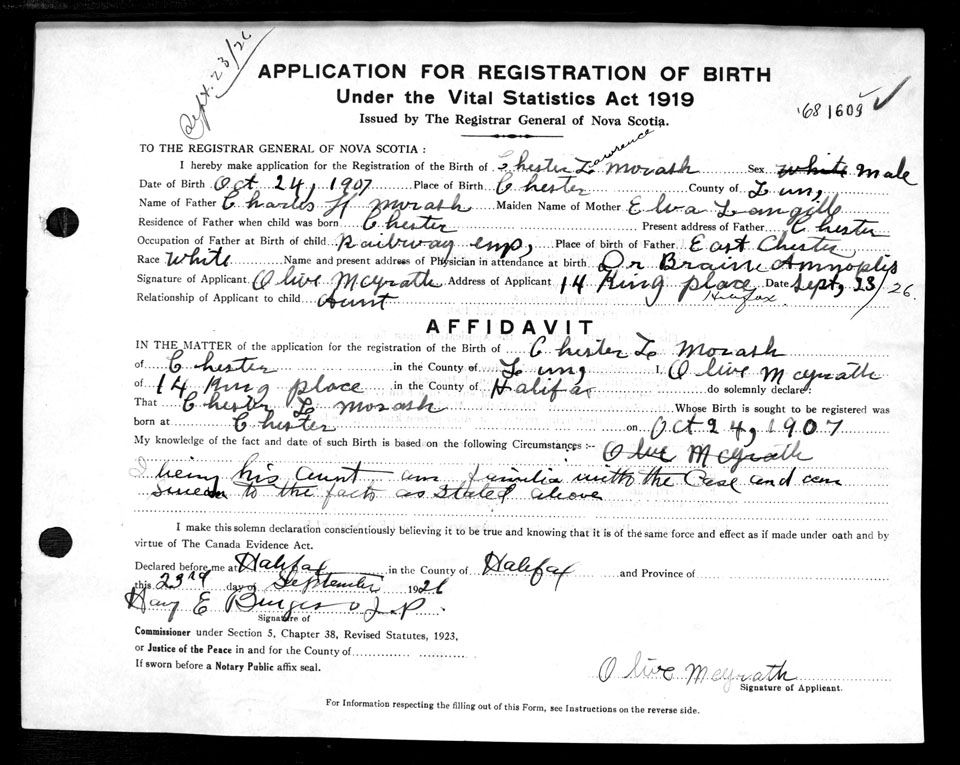 Sept. 23/26
APPLICATION FOR REGISTRATION OF BIRTH
Under the Vital Statistics Act 1919
Issued by The Registrar General of Nova Scotia.
'68 1609
TO THE REGISTRAR GENERAL OF NOVA SCOTIA :
Lawrence
I hereby make application for the Registration of the Birth of Chester L Morash Sex White Male
Date of Birth Oct 24, 1907 Place of Birth Chester County of Lun,
Name of Father Charles H Morash Maiden Name of Mother Elva Langille
Residence of Father when child was born Chester Present address of Father Chester
Occupation of Father at Birth of child Railway emp, Place of birth of Father East Chester
Race White Name and present address of Physician in attendance at birth Dr Braine Annoplis
Signature of Applicant Olive McGrath Address of Applicant 14 King place Halifax Date Sept, 23/26.
Relationship of Applicant to child Aunt
AFFIDAVIT
IN THE MATTER of the application for the registration of the Birth of Chester L Morash
of Chester in the County of Lung I, Olive McGrath
of 14 King place in the County of Halifax do solemnly declare:
That Chester L Morash Whose Birth is sought to be registered was
born at Chester on Oct 24, 1907
My knowledge of the fact and date of such Birth is based on the following Circumstances :- Olive McGrath
I being his Aunt am familia with the Case and can
to the facts as Stated above
I make this solemn declaration conscientiously believing it to be true and knowing that it is of the same force and effect as if made under oath and by
virtue of The Canada Evidence Act.
Declared before me at Halifax in the County of Halifax and Province of
this 23rd day of September 1926
E Burgess J.P.
Signature of
Commissioner under Section 5, Chapter 38, Revised Statutes, 1923,
or Justice of the Peace in and for the County of
If sworn before a Notary Public affix seal.
Olive McGrath
Signature of Applicant.
For Information respecting the filling out of this Form, see Instructions on the reverse side.